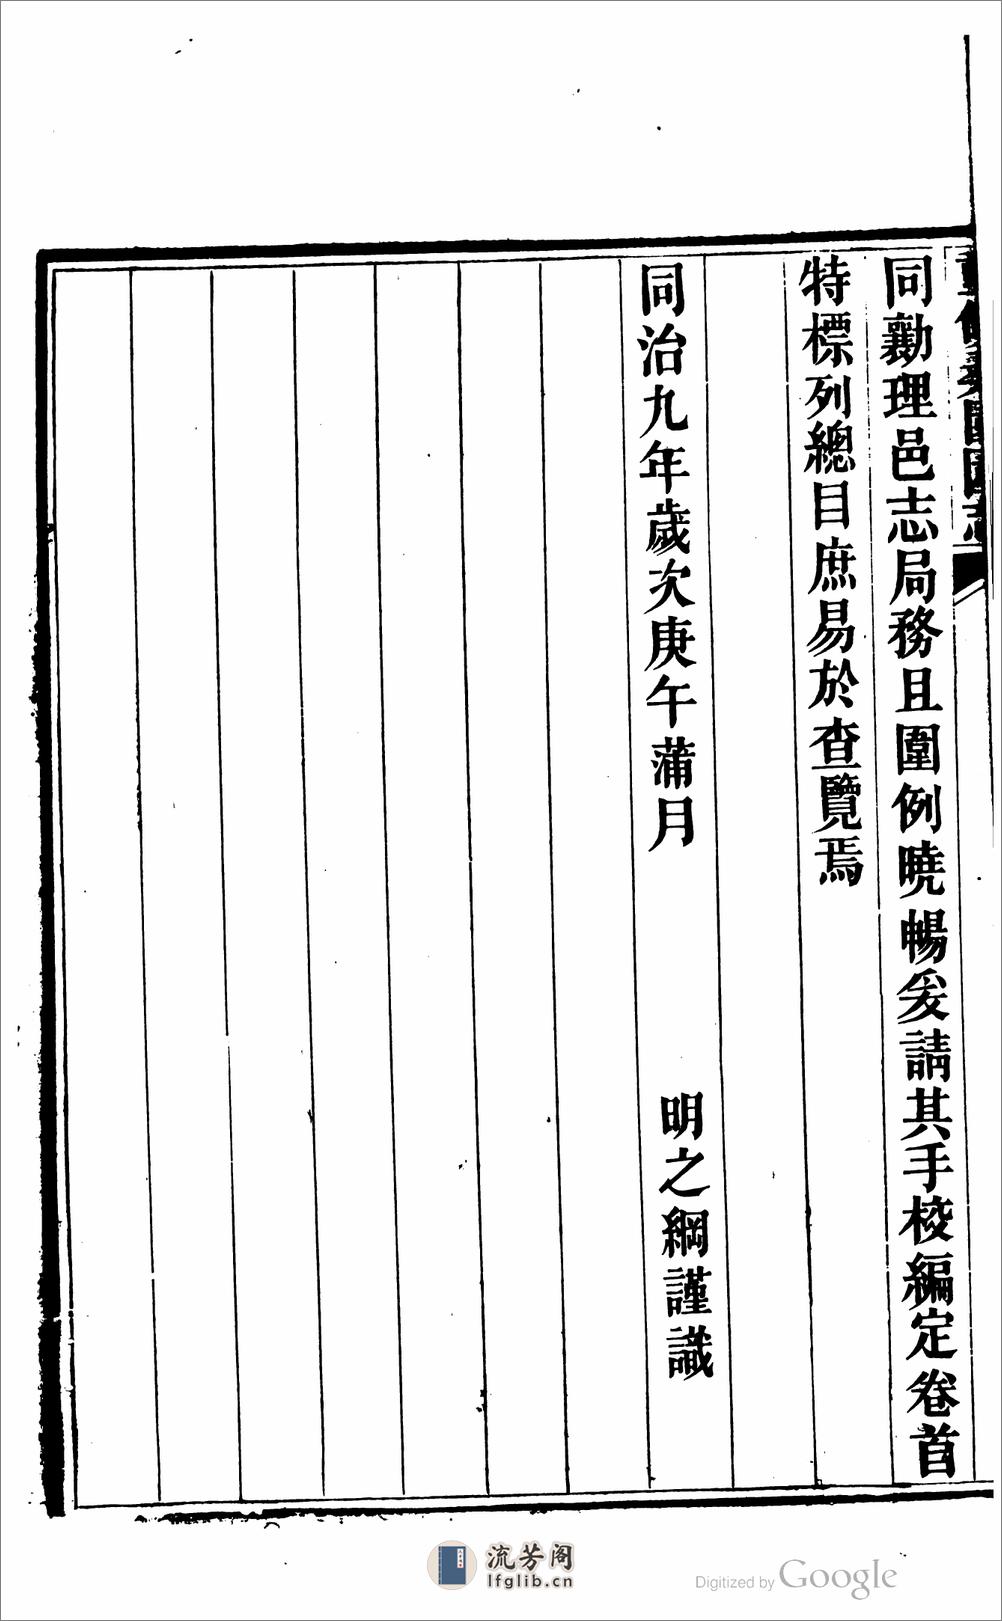 重修桑園圍志
同勷理邑志局務且圍例曉暢爰請其手校編定卷首
特標列總目庶易於查覽焉
同治九年歲次庚午蒲月
明之綱謹識
流芳阁
lfglib.cn
Digitized by Google